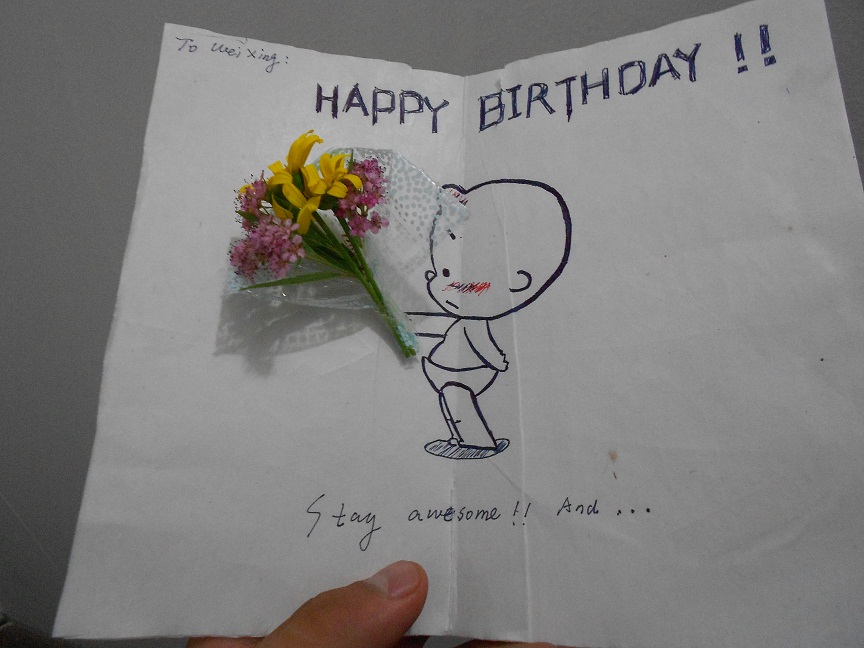 To Wei Xing:
HAPPY BIRTHDAY !!
Stay awesome!! And ...